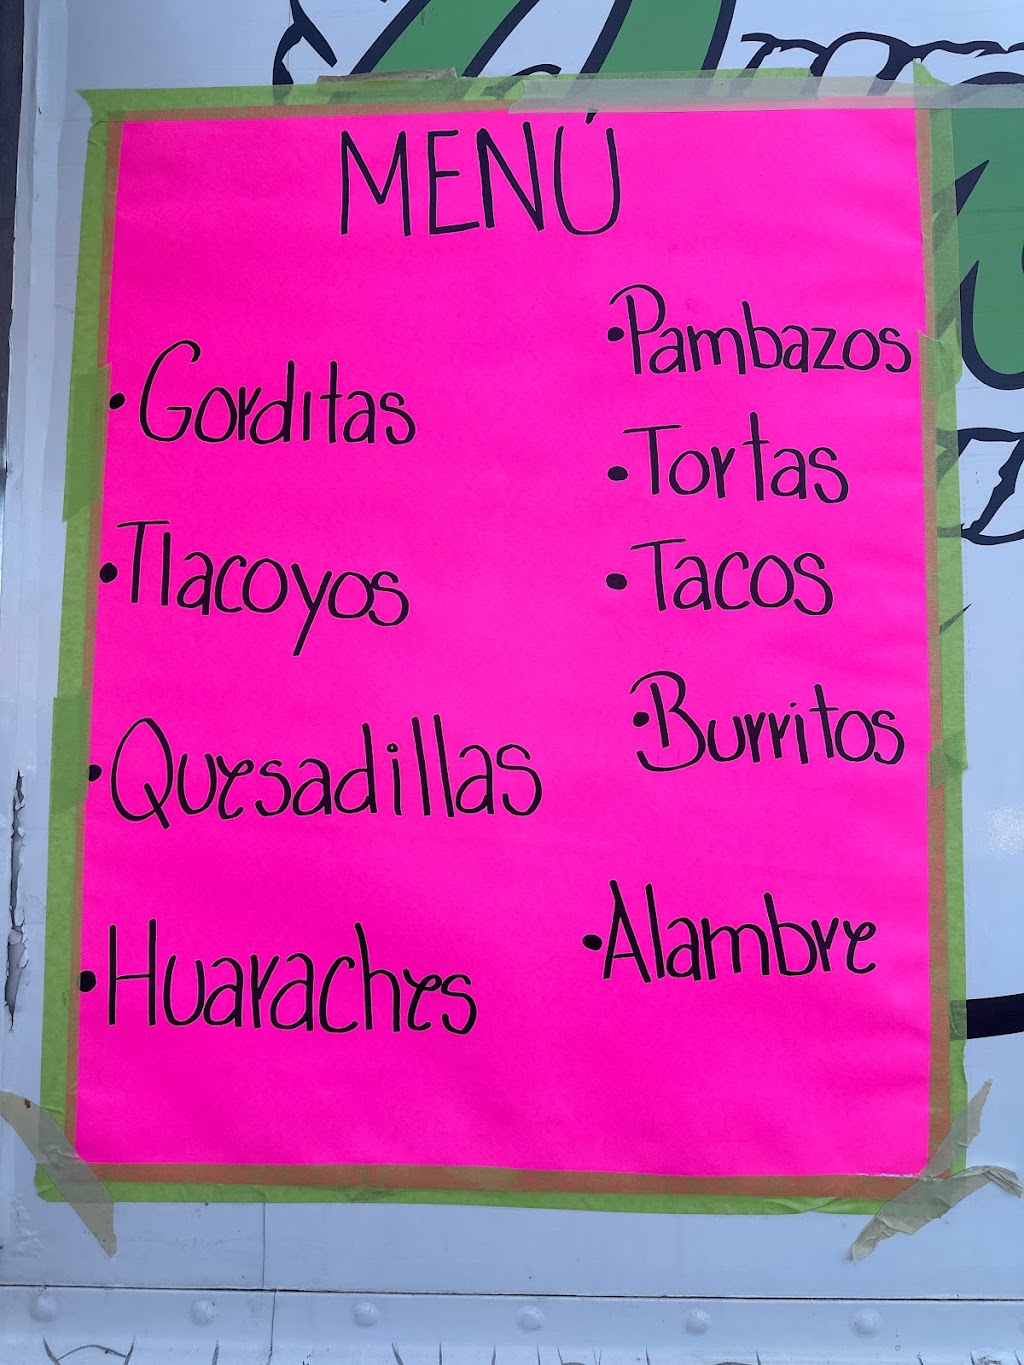 MENÚ
• Gorditas
• Tlacoyos
• Quesadillas
• Huaraches
• Pambazos
• Tortas
• Tacos
• Burritos
• Alambre